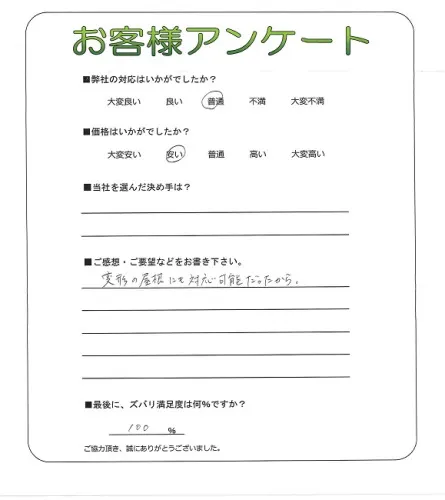 お客様アンケート
■弊社の対応はいかがでしたか?
大変良い 良い 普通 不満 大変不満
■価格はいかがでしたか?
大変安い 安い 普通 高い 大変高い
■当社を選んだ決め手は?
■ご感想・ご要望などをお書き下さい。
変形の屋根にも対応可能だったから。
■最後に、ズバリ満足度は何%ですか?
100 %
ご協力頂き、誠にありがとうございました。